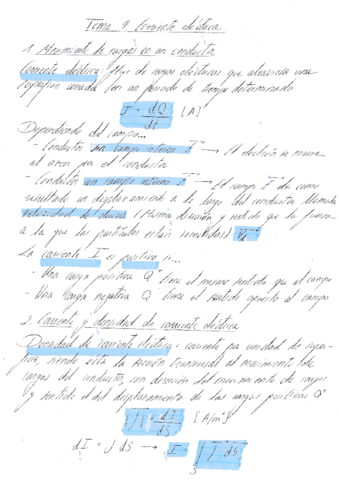 Tema 9 Corriente eléctrica
1. Movimiento de cargas en un conductor
Corriente eléctrica: flujo de cargas eléctricas que atraviesa una
superficie cerrada en un periodo de tiempo determinado
I = dQ/dt [A]
Dependiendo del campo...
- Conductor sin campo externo E → El electrón se mueve
al azar por el conductor
- Conductor con campo externo E → El campo E da como
resultado un desplazamiento a lo largo del conductor llamada
velocidad de deriva (Misma dirección y sentido que la fuerza
a la que las partículas están sometidas) Vd
La corriente I es positiva si...
- Una carga positiva Q⁺ tiene el mismo sentido que el campo
- Una carga negativa Q⁻ tiene el sentido opuesto al campo
2. Corriente y densidad de corriente eléctrica
Densidad de corriente eléctrica: corriente por unidad de super-
ficie, siendo esta la sección transversal al movimiento de
cargas del conductor, con dirección del movimiento de cargas
y sentido el del desplazamiento de las cargas positivas Q⁺
J = dI/dS [A/m²]
dI = J dS → I = ∫ J dS
S